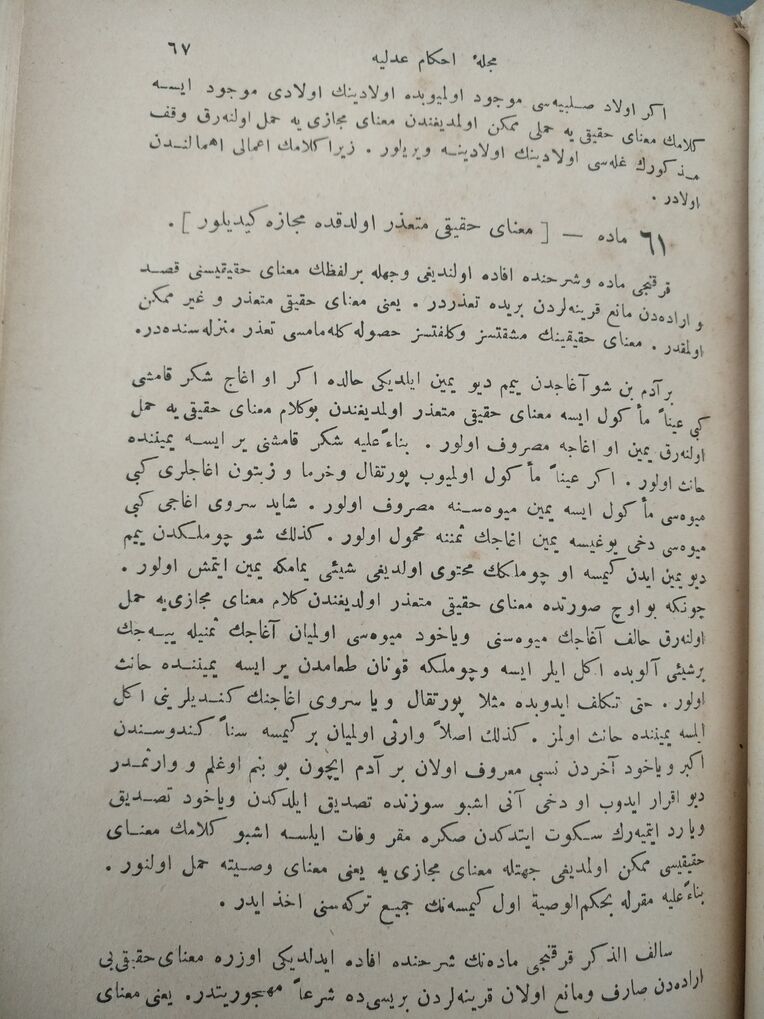 مجلهٔ احكام عدليه ٦٧
اكر اولاد صلبيه‌سى موجود اولميوبده اولادينك اولادى موجود ايسه
كلامك معناى حقيقى يه حملى ممكن اولمديغندن معناى مجازى يه حمل اولنه‌رق وقف
مذكورك غله‌سى اولادينك اولادينه ويريلور . زيرا كلامك اعمالى اهمالندن
اولادر .
٦١ ماده — [ معناى حقيقى متعذر اولدقده مجازه كيديلور ] .
قرقنجى ماده و شرحنده افاده اولنديغى وجهله بر لفظك معناى حقيقيسنى قصد
و اراده‌دن مانع قرينه‌لردن بريده تعذردر . يعنى معناى حقيقى متعذر و غير ممكن
اولمقدر . معناى حقيقينك مشقتسز وكلفتسز حصوله كله‌مامسى تعذر منزله سنده‌در.
بر آدم بن شو آغاجدن ييم ديو يمين ايلديكى حالده اكر او اغاج شكر قامشى
كبى عيناً مأكول ايسه معناى حقيقى متعذر اولمديغندن بوكلام معناى حقيقى يه حمل
اولنه‌رق يمين او اغاجه مصروف اولور . بناءً عليه شكر قامشنى ير ايسه يميننده
حانث اولور . اكر عيناً مأكول اولميوب پورتقال وخرما و زيتون اغاجلرى كبى
ميوه‌سى مأكول ايسه يمين ميوه‌سنه مصروف اولور . شايد سروى اغاجى كبى
ميوه‌سى دخى يوغيسه يمين اغاجك ثمننه محمول اولور . كذلك شو چوملكدن ييم
ديو يمين ايدن كيمسه او چوملكك محتوى اولديغى شيئى يمامكه يمين ايتمش اولور .
چونكه بو اوچ صورتده معناى حقيقى متعذر اولديغندن كلام معناى مجازى‌يه حمل
اولنه‌رق حالف آغاجك ميوه‌سنى وياخود ميوه‌سى اولميان آغاجك ثمنيله ييه‌جك
برشيئى آلوبده اكل ايلر ايسه وچوملكه قونان طعامدن ير ايسه يميننده حانث
اولور . حتى تكلف ايدوبده مثلا پورتقال و يا سروى اغاجنك كنديلرينى اكل
ايلسه يميننده حانث اولمز . كذلك اصلاً وارثى اولميان بر كيمسه سناً كندوسندن
اكبر وياخود آخردن نسبى معروف اولان بر آدم ايچون بو بنم اوغلم و وارثمدر
ديو اقرار ايدوب او دخى آنى اشبو سوزنده تصديق ايلدكدن وياخود تصديق
ويارد ايتميه‌رك سكوت ايتدكدن صكره مقر وفات ايلسه اشبو كلامك معناى
حقيقيسى ممكن اولمديغى جهتله معناى مجازى يه يعنى معناى وصيته حمل اولنور .
بناءً عليه مقرله بحكم الوصية اول كيمسه‌نك جميع تركه‌سنى اخذ ايدر .
سالف الذكر قرقنجى ماده‌نك شرحنده افاده ايدلديكى اوزره معناى حقيقى‌يى
اراده‌دن صارف ومانع اولان قرينه‌لردن بريسى‌ده شرعاً مهجوريتدر. يعنى معناى